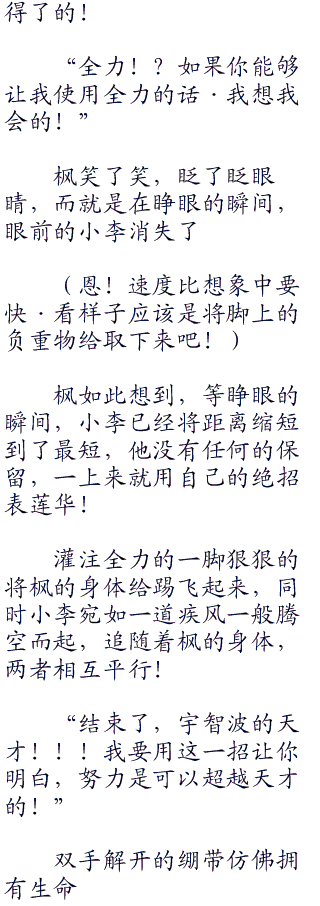 得了的！
“全力！？如果你能够
让我使用全力的话·我想我
会的！”
枫笑了笑，眨了眨眼
睛，而就是在睁眼的瞬间，
眼前的小李消失了
（恩！速度比想象中要
快·看样子应该是将脚上的
负重物给取下来吧！）
枫如此想到，等睁眼的
瞬间，小李已经将距离缩短
到了最短，他没有任何的保
留，一上来就用自己的绝招
表莲华！
灌注全力的一脚狠狠的
将枫的身体给踢飞起来，同
时小李宛如一道疾风一般腾
空而起，追随着枫的身体，
两者相互平行！
“结束了，宇智波的天
才！！！我要用这一招让你
明白，努力是可以超越天才
的！”
双手解开的绷带仿佛拥
有生命